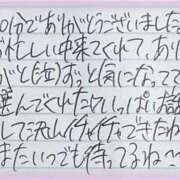 0分でありがとうございました
お忙しい中来てくれてあり
がと(泣)ずっと気になってて
選んでくれたけ いっぱいお話
して沢山イチャイチャできたね
またいつでも待ってるね〜